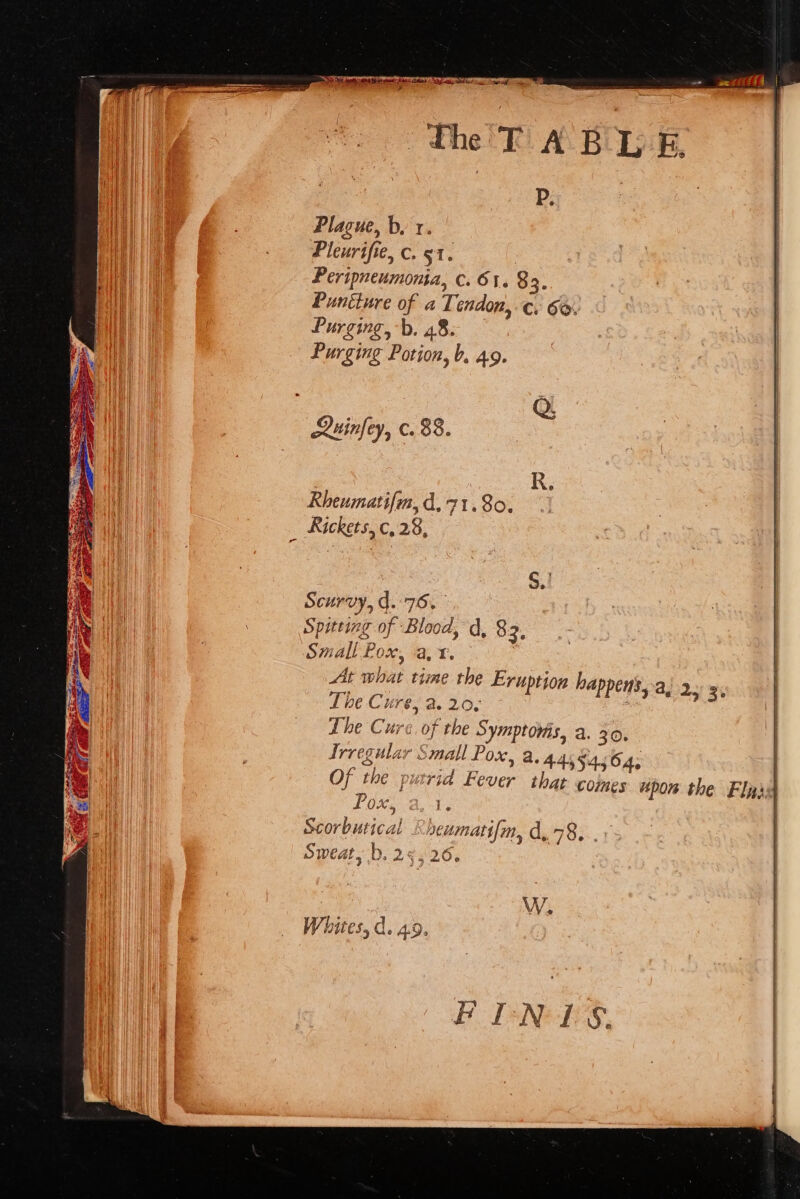 The TABLE.
P.
Plague, b. 1.
Pleurisie, c. 51.
Peripneumonia, c. 61. 83.
Puncture of a Tendon, c. 60.
Purging, b. 48.
Purging Potion, b. 49.
Q.
Quinsey, c. 88.
R.
Rheumatism, d. 71. 80.
Rickets, c, 28,
S.
Scurvy, d. 76.
Spitting of Blood, d, 83.
Small Pox, a, 1.
At what time the Eruption happens, a, 2, 3.
The Cure, a. 20.
The Cure of the Symptoms, a. 30.
Irregular Small Pox, a. 44, 54, 64.
Of the putrid Fever that comes upon the Flux
Pox, a, 1.
Scorbutical Rheumatism, d. 78.
Sweat, b. 25, 26.
W.
Whites, d. 49.
FINIS.